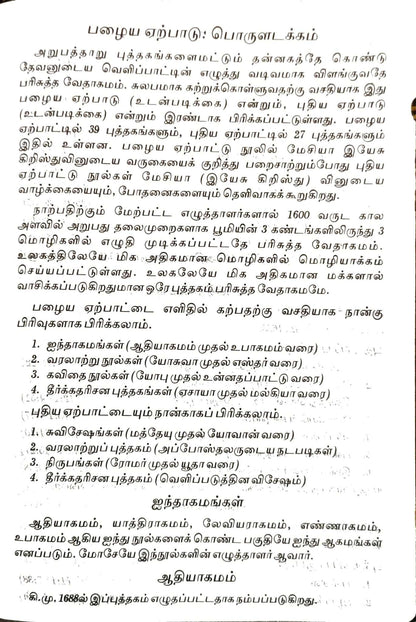 பழைய ஏற்பாடு: பொருளடக்கம்
அறுபத்தாறு புத்தகங்களைமட்டும் தன்னகத்தே கொண்டு
தேவனுடைய வெளிப்பாட்டின் எழுத்து வடிவமாக விளங்குவதே
பரிசுத்த வேதாகமம். சுலபமாக கற்றுக்கொள்ளுவதற்கு வசதியாக இது
பழைய ஏற்பாடு (உடன்படிக்கை) என்றும், புதிய ஏற்பாடு
(உடன்படிக்கை) என்றும் இரண்டாக பிரிக்கப்பட்டுள்ளது. பழைய
ஏற்பாட்டில் 39 புத்தகங்களும், புதிய ஏற்பாட்டில் 27 புத்தகங்களும்
இதில் உள்ளன. பழைய ஏற்பாடு நூலில் மேசியா இயேசு
கிறிஸ்துவினுடைய வருகையைக் குறித்து பறைசாற்றும்போது புதிய
ஏற்பாட்டு நூல்கள் மேசியா (இயேசு கிறிஸ்து) வினுடைய
வாழ்க்கையையும், போதனைகளையும் தெளிவாகக் கூறுகிறது.
நாற்பதிற்கும் மேற்பட்ட எழுத்தாளர்களால் 1600 வருட கால
அளவில் அறுபது தலைமுறைகளாக பூமியின் 3 கண்டங்களிலிருந்து 3
மொழிகளில் எழுதி முடிக்கப்பட்டதே பரிசுத்த வேதாகமம்.
உலகத்திலேயே மிக அதிகமான மொழிகளில் மொழியாக்கம்
செய்யப்பட்டுள்ளது. உலகலேயே மிக அதிகமான மக்களால்
வாசிக்கப்படுகிறதுமான ஒரே புத்தகம் பரிசுத்த வேதாகமமே.
பழைய ஏற்பாட்டை எளிதில் கற்பதற்கு வசதியாக நான்கு
பிரிவுகளாக பிரிக்கலாம்.
1. ஐந்தாகமங்கள் (ஆதியாகமம் முதல் உபாகமம் வரை)
2. வரலாற்று நூல்கள் (யோசுவா முதல் எஸ்தர் வரை)
3. கவிதை நூல்கள் (யோபு முதல் உன்னதப்பாட்டு வரை)
4. தீர்க்கதரிசன புத்தகங்கள் (ஏசாயா முதல் மல்கியா வரை)
புதிய ஏற்பாட்டையும் நான்காகப் பிரிக்கலாம்.
1. சுவிசேஷங்கள் (மத்தேயு முதல் யோவான் வரை)
2. வரலாற்றுப் புத்தகம் (அப்போஸ்தலருடைய நடபடிகள்)
3. நிருபங்கள் (ரோமர் முதல் யூதா வரை)
4. தீர்க்கதரிசன புத்தகம் (வெளிப்படுத்தின விசேஷம்)
ஐந்தாகமங்கள்
ஆதியாகமம், யாத்திராகமம், லேவியராகமம், எண்ணாகமம்,
உபாகமம் ஆகிய ஐந்து நூல்களைக் கொண்ட பகுதியே ஐந்து ஆகமங்கள்
எனப்படும். மோசேயே இந்நூல்களின் எழுத்தாளர் ஆவார்.
ஆதியாகமம்
கி.மு. 1688ல் இப்புத்தகம் எழுதப்பட்டதாக நம்பப்படுகிறது.